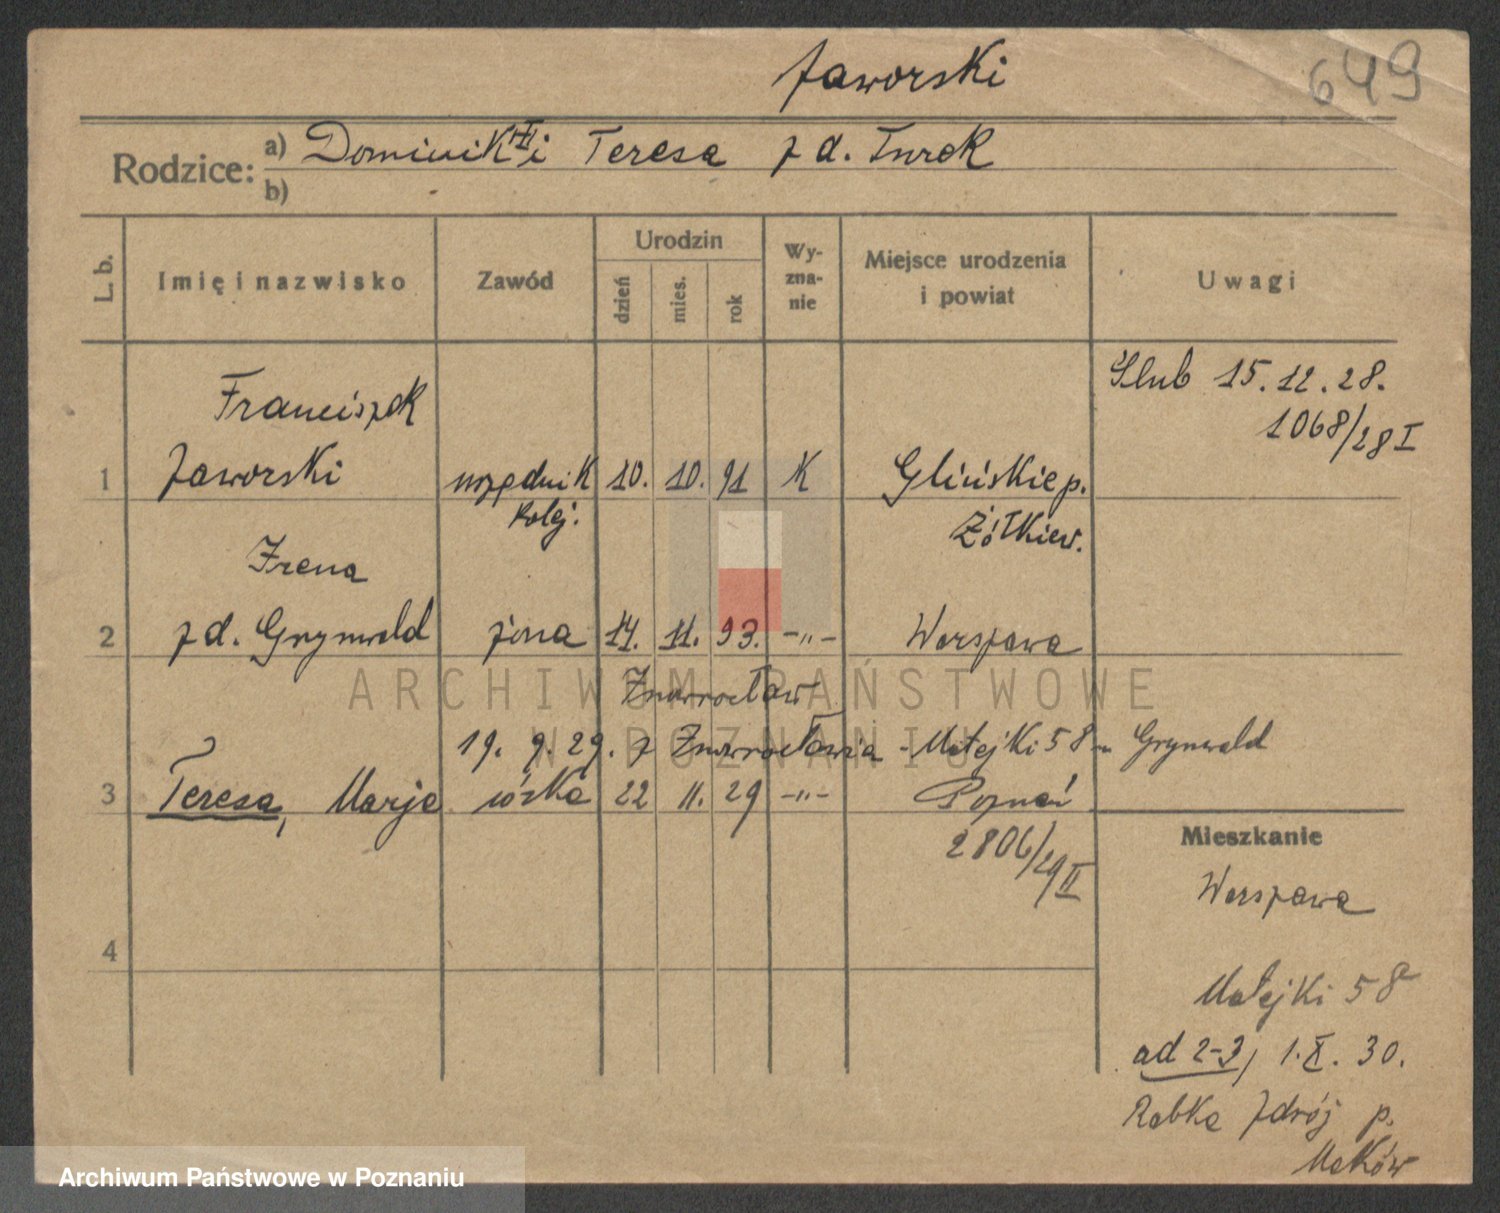 Jaworski
649
Rodzice: a) Dominik i Teresa z d. Turek
b)
L. b.
Imię i nazwisko
Zawód
Urodzin
dzień
mies.
rok
Wy-
zna-
nie
Miejsce urodzenia
i powiat
Uwagi
Ślub 15.12.28.
1068/28 I
Franciszek
1 Jaworski urzędnik 10. 10. 91 K Glińskie p.
kolej. Żółkiew.
Irena
2 z d. Grynwald żona 14. 11. 93. -„- Warszawa
Inowrocław
19. 9. 29. z Inowrocławia - Matejki 58 - Grynwald
3 Teresa, Marja córka 22 11. 29 -„- Poznań
2806/29 II
Mieszkanie
Warszawa
4
Matejki 58
ad 2-3, 1.X.30.
Rabka Zdrój p.
Maków
ARCHIWUM PAŃSTWOWE
W POZNANIU
Archiwum Państwowe w Poznaniu